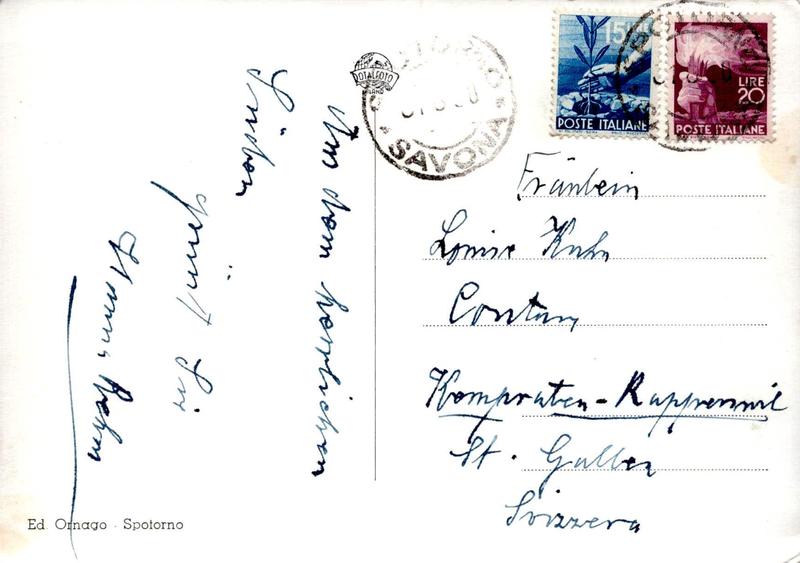 Aus dem herrlichen
Süden
grüsst Sie
ROTALFOTO
SAVONA
15
POSTE ITALIANE
LIRE
20
POSTE ITALIANE
Fräulein
Louise Kuhn
Kempraten - Rapperswil
St. Gallen
Svizzera
Ed. Ornago · Spotorno